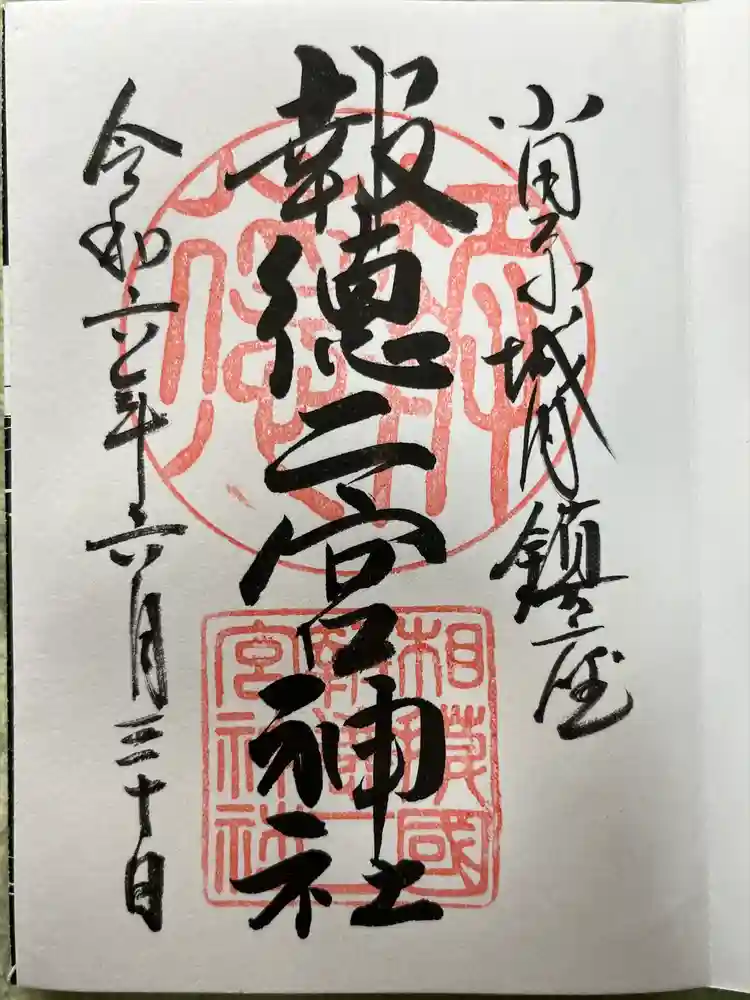 小田原城内鎮座
報徳二宮神社
令和六年六月三十日
相模國報德二宮神社